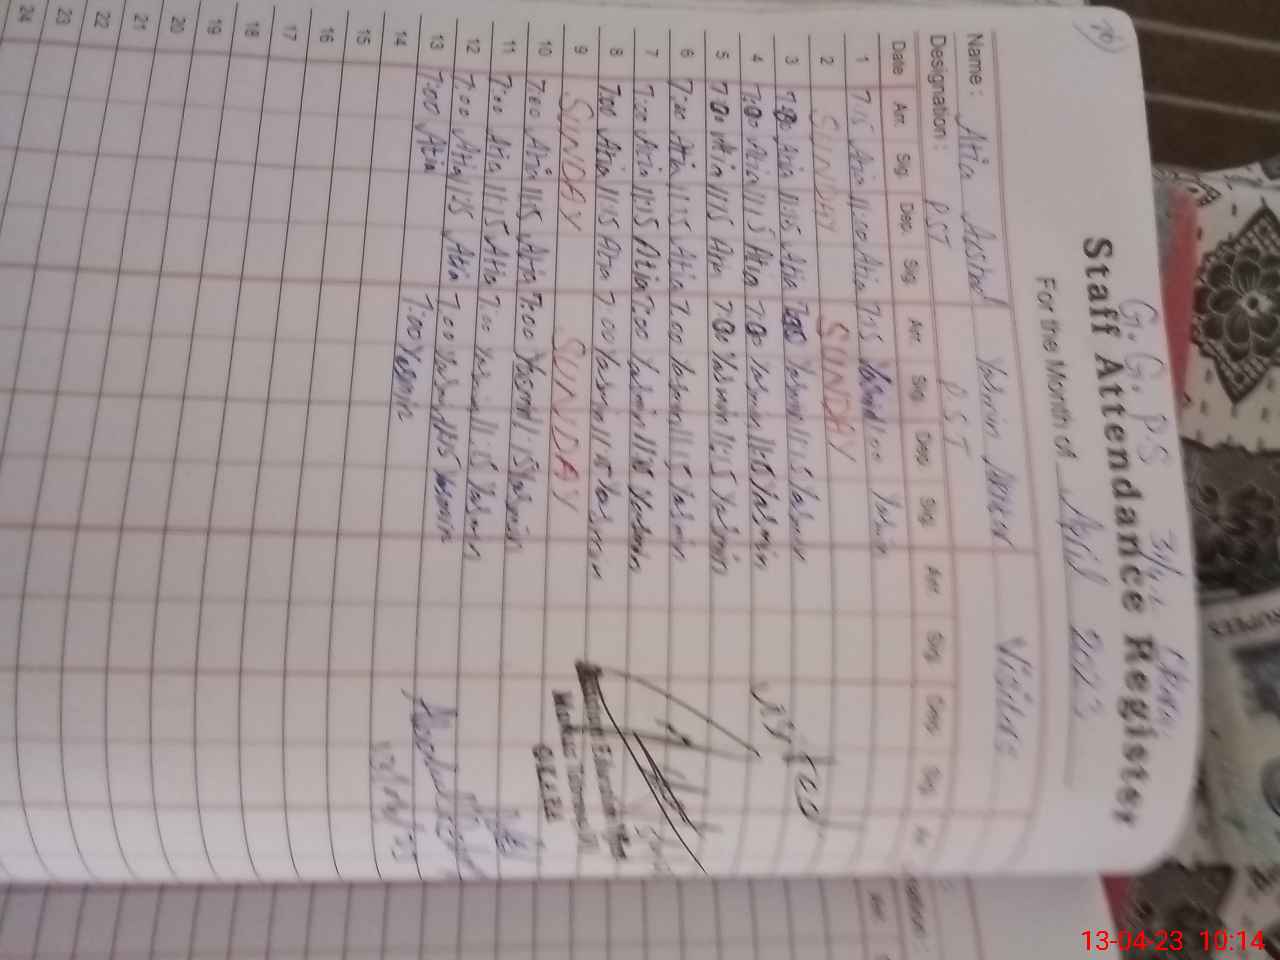 76)
G. G. P.S
Staff Attendance Register
For the Month of April 2023
Name: Atia Yasmin Visitors
Designation: PST P.S.T
Date Arr. Sig. Dep. Sig. Arr. Sig. Dep. Sig. Arr. Sig. Dep. Sig. Ar
1 7:15 Atia 11:00 Atia 7:15 11:00 Yasmin
2 SUNDAY SUNDAY
3 7:00 Atia 11:15 Atia 7:00 Yasmin 11:15 Yasmin
4 7:00 Atia 11:15 Atia 7:00 Yasmin 11:15 Yasmin
5 7:00 Atia 11:15 Atia 7:00 Yasmin 11:15 Yasmin
6 7:00 Atia 11:15 Atia 7.00 Yasmin 11:15 Yasmin
7 7:00 Atia 11:15 Atia 7:00 Yasmin 11:15 Yasmin
8 7.00 Atia 11:15 Atia 7:00 Yasmin 11:15 Yasmin
9 SUNDAY SUNDAY
10 7:00 Atia 11:15 Atia 7:00 Yasmin 11:15 Yasmin
11 7:00 Atia 11:15 Atia 7:00 Yasmin 11:15 Yasmin
12 7:00 Atia 11:15 Atia 7.00 Yasmin 11:15 Yasmin
13 7:00 Atia 7:00 Yasmin
14
15
16
17
18
19
20
21
22
23
24
13-04-23 10:14